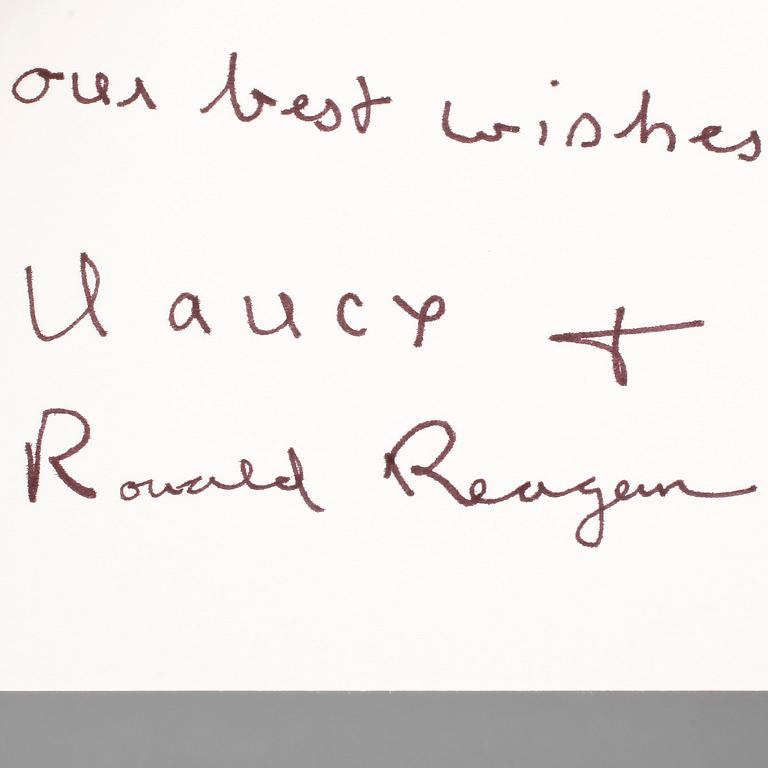 our best wishes
Nancy +
Ronald Reagan